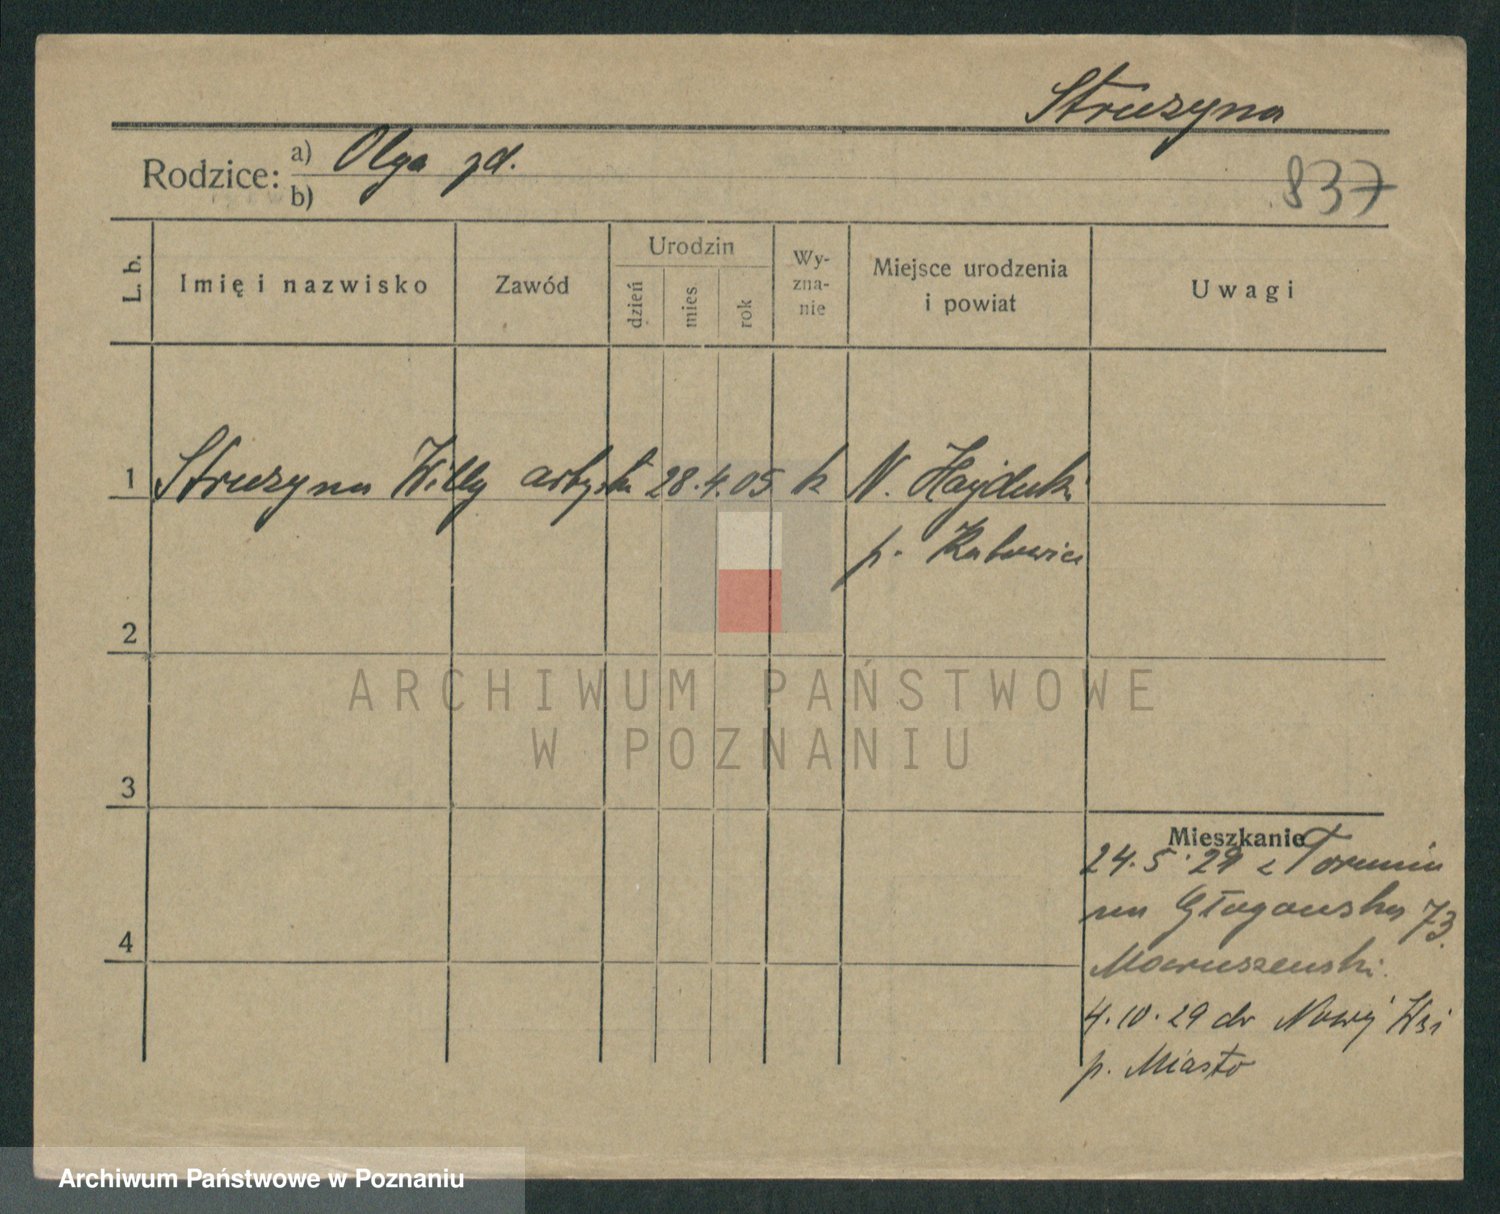 Struzyna
Rodzice:
a) Olga zd.
b)
837
L. b.
Imię i nazwisko
Zawód
Urodzin
dzień
mies.
rok
Wy-
zna-
nie
Miejsce urodzenia
i powiat
Uwagi
1 Struzyna Willy artysta 28.4.05 k N. Hajduki
p. Katowice
2
ARCHIWUM PAŃSTWOWE
W POZNANIU
3
Mieszkanie
24.5.29 z Torunia
Głogowska 73.
4
4.10.29 do Nowej Wsi
p. Miasto
Archiwum Państwowe w Poznaniu